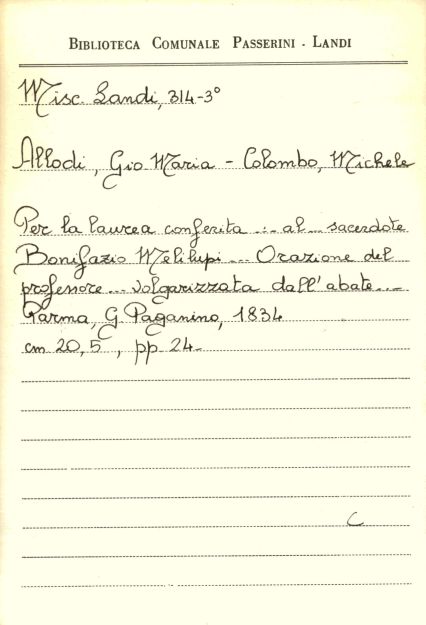 BIBLIOTECA COMUNALE PASSERINI - LANDI
Misc. Landi, 314-3°
Allodi, Gio. Maria - Colombo, Michele
Per la laurea conferita ... al ... sacerdote
Bonifazio Melilupi ... Orazione del
professore ... volgarizzata dall'abate ...
Parma, G. Paganino, 1834
cm 20,5, pp. 24.
C